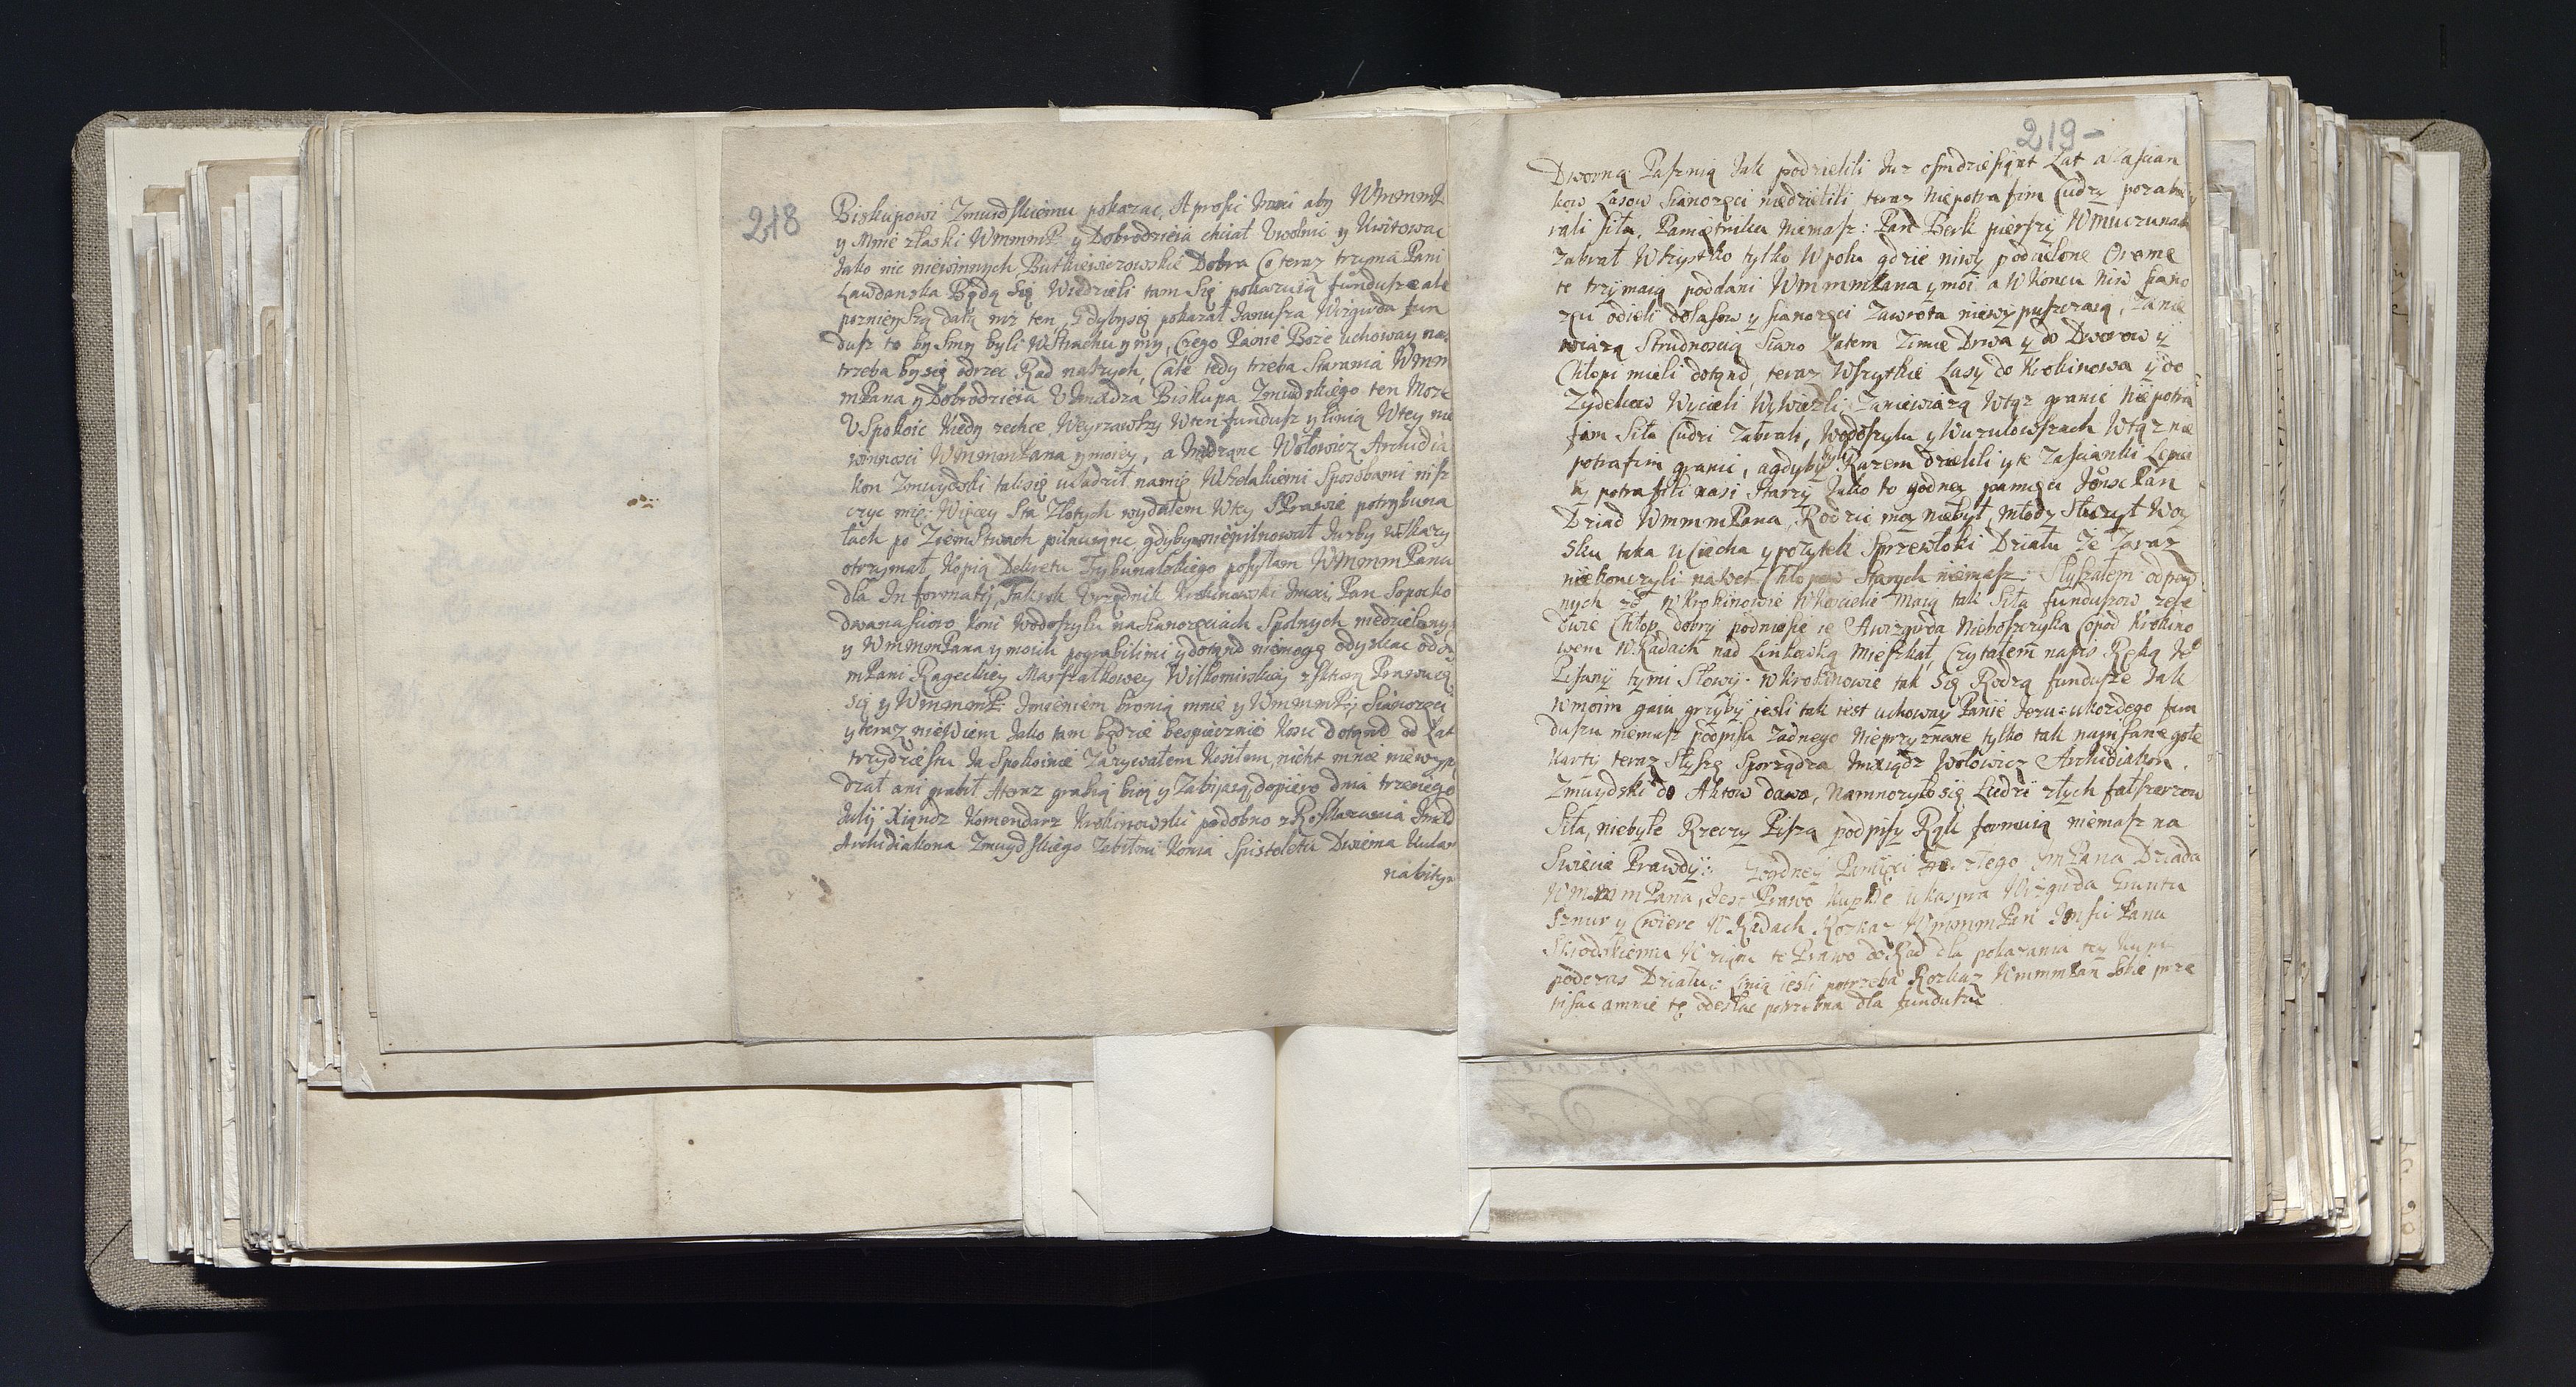 218
Biskupowi Zmudskiemu pokazac, A prosic Imści aby WMmmP
y Mnie złaski WmmmP y Dobrodzieia chciał Uwolnic y Kwitowac
Jako nic niewinnych, Butkiewiczowskie Dobra Co teraz trzyma Pani
Ławdanska Będą Się Wiedzieli tam Się pokazuią fundusze ale
poznieyszą datą niz ten, Gdybysię pokazał Janusza Wizgirda fun
dusz to bysmy byli Wstrachu y my, Czego Panie Boze uchoway nas
trzeba bysię odrzec Rad naszych, Cale tedy trzeba Starania Wmm
mPana y Dobrodzieia U Imxdza Biskupa Zmudskiego ten Moze
Uspokoic Kiedy zechce Weyrzawszy Wten fundusz y linią Wtey nie
winnosci WmmmPana y moiey, a Imxdz Wołowicz Archidia
kon Zmuydski taksię usadził namię Wszelakiemi Sposobami nisz
czyc mię: Więcey Sta Złotych wydałem Wtey Sprawie potrybuna
łach po Ziemstwach pilnuiąc, gdybym niepilnował Juzby Wskazy
otrzymał Kopią Dekretu Trybunalskiego posyłam WMmmPanu
dla Informatij, Tak rok Urzędnik Krokinowski Imści Pan Sopocko
dwanascioro Koni Wodoszylu na Sianozęciach Spolnych niedzielony
y WmmmPana y moich pograbilimi y dotąnd niemogę odyskac odJ
mPani Rageckiey Marszałkowey Wiłkomirskiey zktorą Prawuię
się y WmmmP: Imieniem bronią mnie y WmmmPey Sianozęci
y teraz niewiem Jako tam będzie bespiecznie Kosic dotąnd od Lat
trzydziestu Ja Spokoinie Zazywałem Kosiłem, nicht mnie niewypę
dzał ani grabił Ateraz grabią biią y Zabijaią, dopiero dnia trzeciego
Julij Xiąndz Komendarz Krokinowski podobno z Roskazania Imxd
Archidiakona Zmuydskiego Zabiłmi Konia Spistoletu Dwiema Kulam
nabitym
219-
Dworną Pasznią Jak podzielili Juz osmdziesiąt Lat a Zascian
kow Lasow Sianozęci niedzielili teraz niepotrafim Cudzy pozabie
rali siła, Pamiętnika niemasz: Pan Berk pierszy Wmuczunach
Zabrał Wszystko tylko Wpolu gdzie niwy podzielone Oreme
te trzymaią poddani WmmmPana y moi a Wkoncu Niw siano
zęci odieli dolasow y sianozęci Zawrota niewypuszczaią, Zanie
wiazą Strudnoscią Siano Latem Zimie Drwa y do Dworow y
Chłopi mieli dotąnd, teraz Wszytkie Lasy do Krokinowa y do
Zydelow Wycieli Wywiezli Zaniewiazą Wtąz granic Niepotra
fim Siła Cudzi Zabrali, Wodoszylu y Wuzulowszach Wtąz nie
potrafim granic, agdyby byli Razem Dzielili y te Zascianki Lepie
by potrafili nasi Starzy Jako to godney pamięci Jmsc Pan
Dziad WmmmPana, Rodzic moy niebył, młody Słuzył Woy
sku taka uciecha y pozytek Sprzewłoki Działu Ze Zaraz
niekonczyli nawet Chłopow Starych niemasz: Słyszałem odpew
nych zo Wkrokinowie Wkosciele Maią tak Siła funduszow zese
dwie Chłop dobry podniesie ie Awizgirda Nieboszczyka Copod Krokino
wem WRadach nad Linkowką Mieszkał, Czytałem napis Ręką Je
Pisany tymi Słowy: Wkrokinowie tak Się Rodzą fundusze Jak
Wmoim gaiu grzyby iesli tak iest uchoway Panie Jezu: ukozdego fun
duszu niemasz podpisu Zadnego Nieprzyznane tylko tak napisane gołe
Karty teraz Słyszę Sporządza Imxiądz Wołowicz Archidiakon
Zmuydski do Aktow dawa, Namnozyłosię Ludzi złych fałszerzow
Siła, niebyłe Rzeczy Piszą podpisy Rąk formuią niemasz na
Swiecie Prawdy: Godney Pamięci zeszłego JmPana Dziada
WmmmPana, Jest Prawo Kupne u Kaspra Wizgirda Gruntu
Sznur y Cwierc W Radach Rozkaz WmmmPan Jmsci Panu
Skrodskiemu Wziąc te Prawo do Rad dla pokazania tey Kupli
podczas Działu: Linią iesli potrzeba Rozkaz WmmmPan Sobie prze
pisac amnie tę odesłac potrzebna dla funduszu